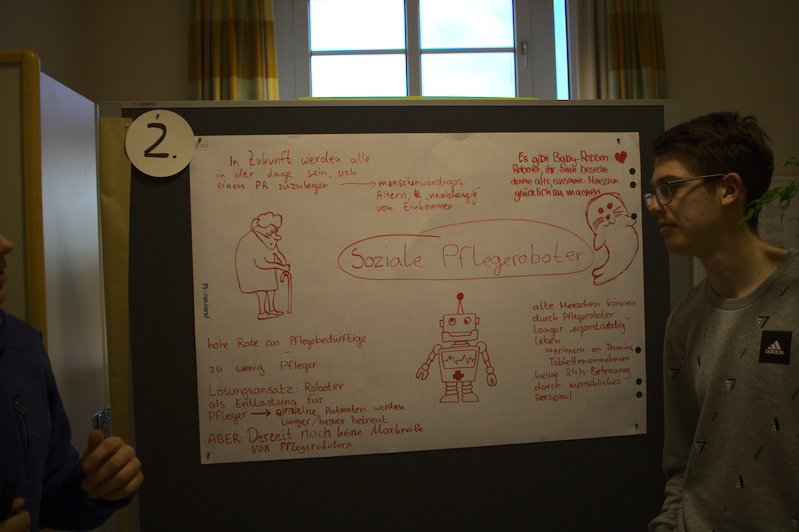 2.
In Zukunft werden alle
in der Lage sein, sich
einen PR zuzulegen → menschenwürdiges
Altern, "unabhängig"
von Einkommen
Es gibt Baby-Robben
Roboter, ihr Sinn besteht
darin alte, einsame Menschen
glücklich zu machen
Soziale Pflegeroboter
hohe Rate an Pflegebedürftige
zu wenig Pfleger
Lösungsansatz: Roboter
als Entlastung für
Pfleger → einzelne Patienten werden
länger/besser betreut
ABER: Derzeit noch keine Marktreife
von Pflegerobotern
alte Menschen können
durch Pflegeroboter
länger "eigenständig"
leben
erinnern an Termine,
Tabletteneinnahmen
keine 24h-Betreuung
durch menschliches
Personal
neuland
adidas